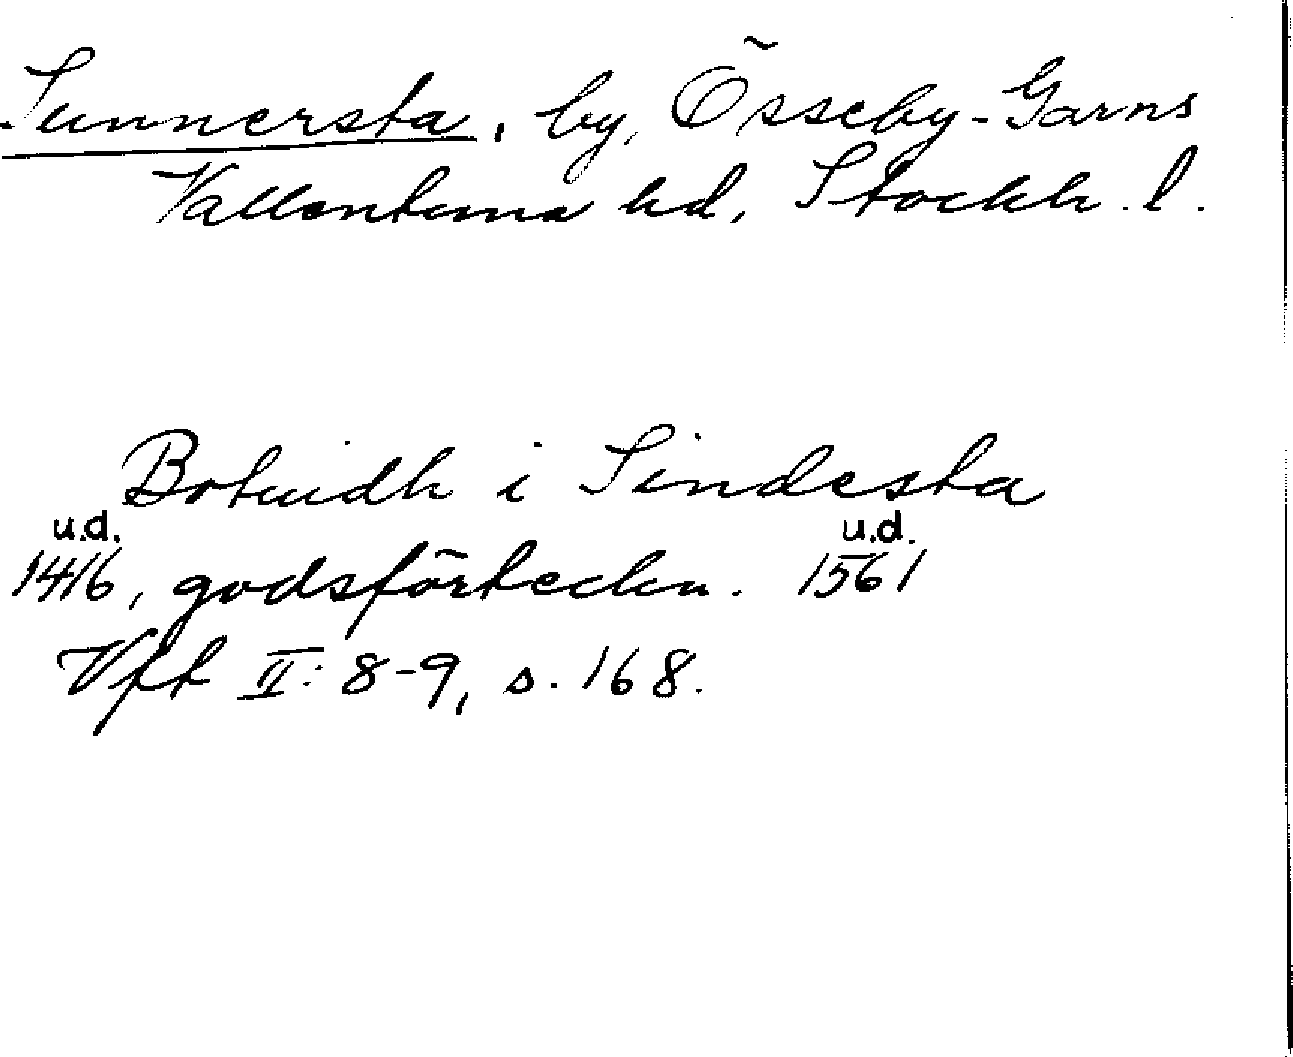 Sunnersta, by, Össeby-Garns
Vallentuna hd, Stockh. l.
Botuidh i Sindesta
u.d. u.d.
1416, godsförteckn. 1561
Vft II: 8-9, s. 168.